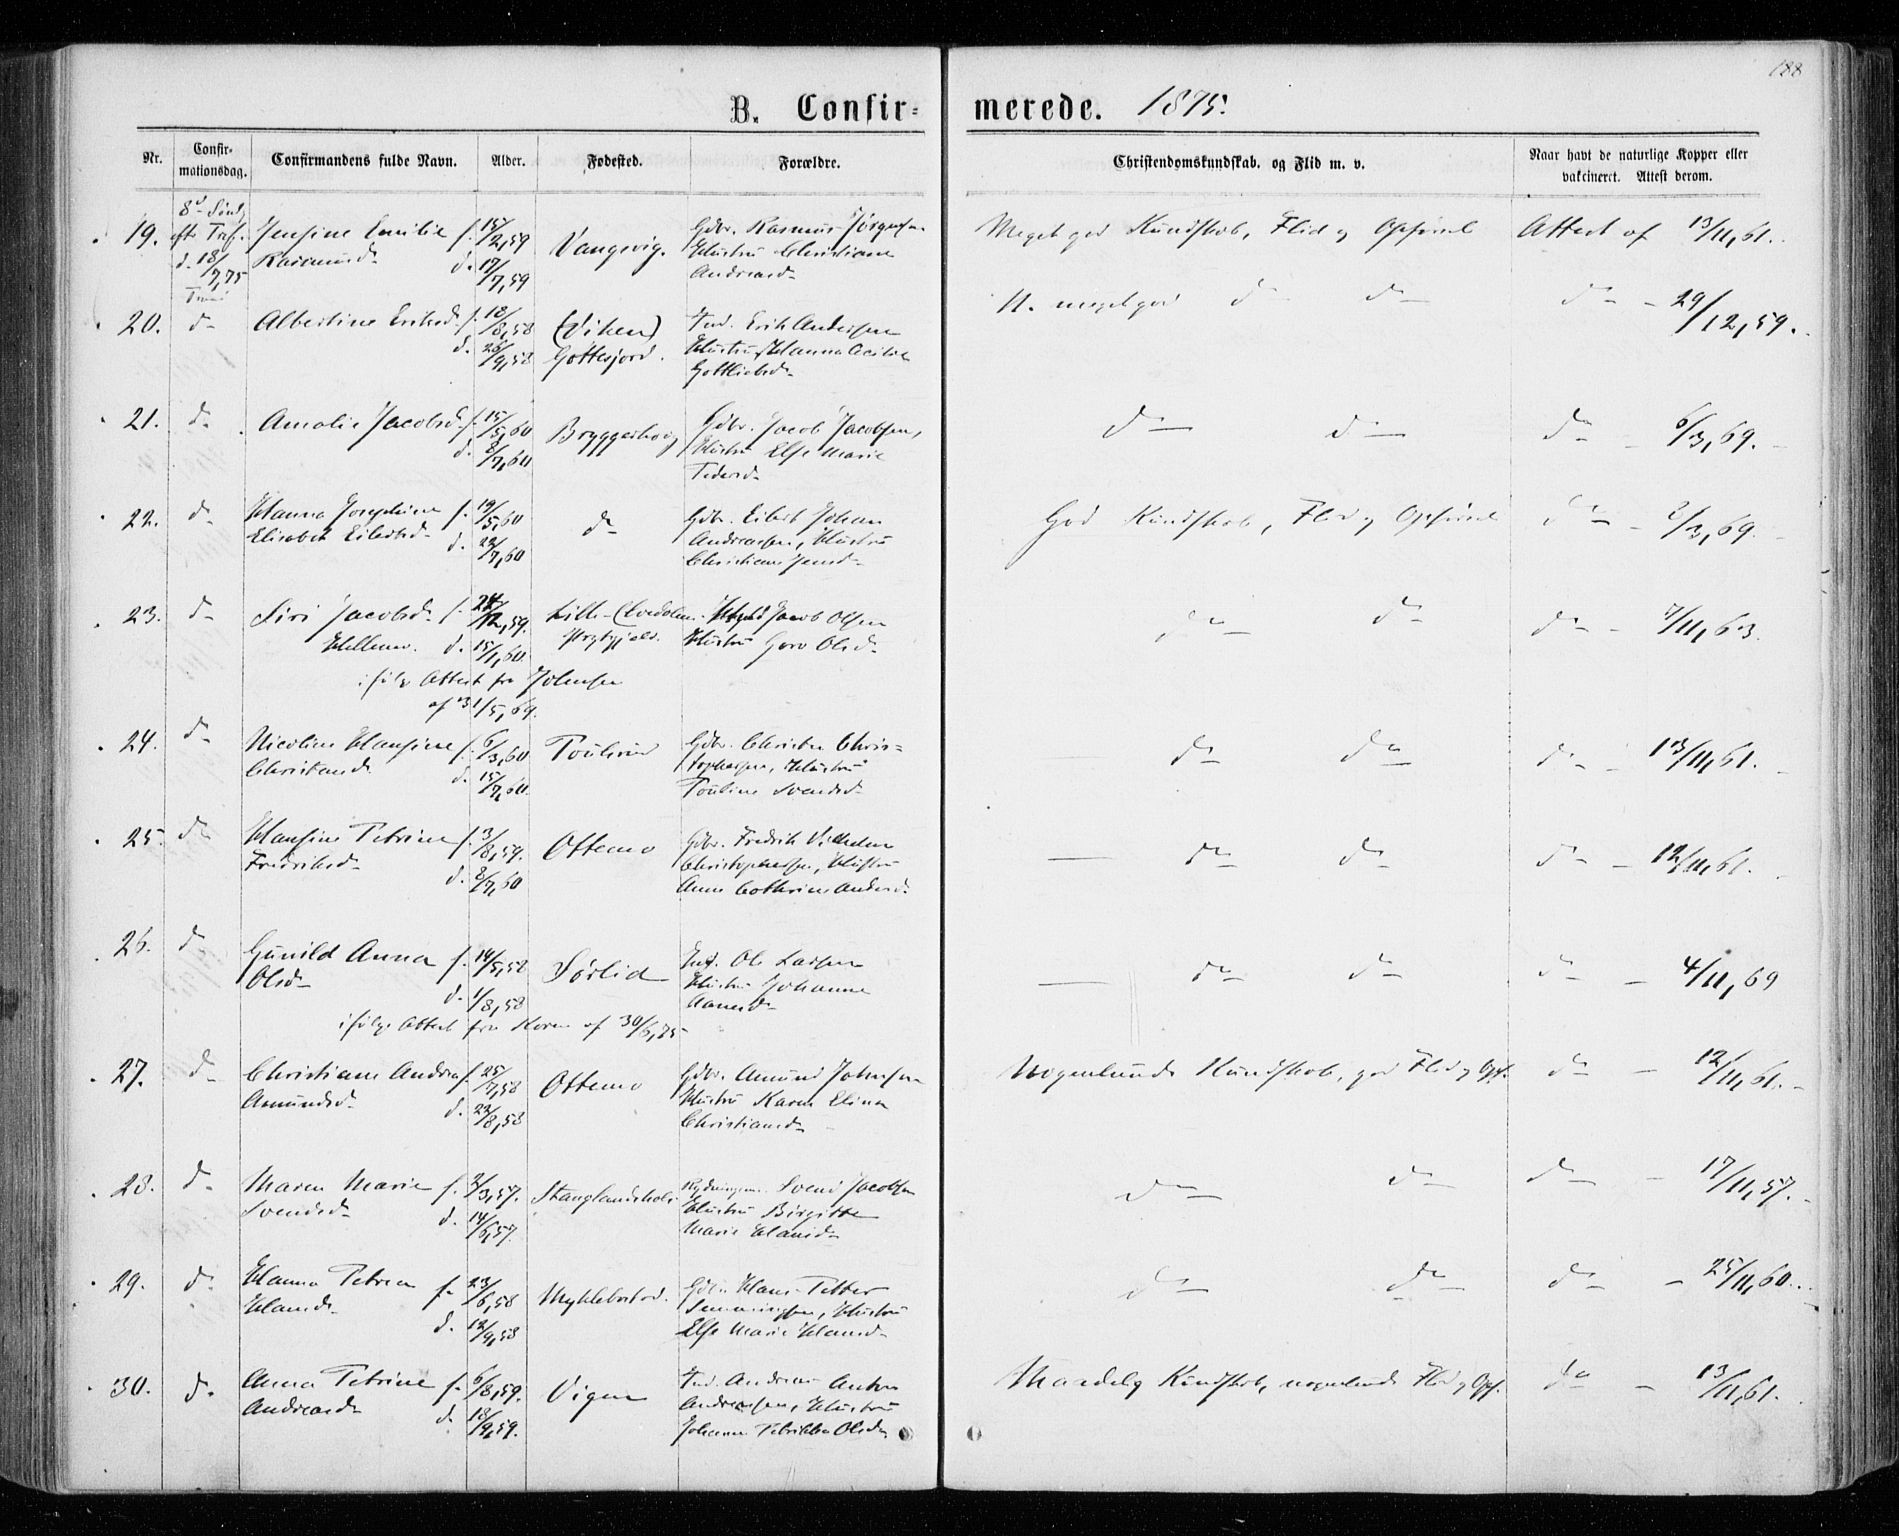 188
B. Confir-
merede. 1875.
Nr.
Confir-
mationsdag.
Confirmandens fulde Navn.
Alder.
Fødested.
Forældre.
Christendomskundskab. og Flid m. v.
Naar havt de naturlige Kopper eller
vakcineret. Attest derom.
19.
8d Sønd.
eftr Tref.
d. 18/7,75
Jensine Emilie
Rasmusd.
f. 15/2,59
d. 17/7,59
Vangsvig.
Gdbr. Rasmus Jørgensen
Hustru Christiane
Andreasd.
Meget god Kundskab, Flid og Opførsel
Attest af 13/11,61.
20.
do
Albertine Eriksd.
f. 18/8,58
d. 26/9,58
(Viken)
Gottesjord.
Ind. Erik Andersen
Hustru Hanna Cecilie
Gottliebsd.
N. meget god do do
do - 29/12,59.
21.
do
Amalie Jacobsd.
f. 15/5,60
d. 8/7,60
Bryggerhoug
Gdbr. Jacob Jacobsen,
Hustru Else Marie
Pedersd.
do do
do - 6/3,69.
22.
do
Hanna Josephine
Elisabet Eilertsd.
f. 19/5,60
d. 22/7,60
do
Gdbr. Eilert Johan
Andreassen, Hustru
Christiane Jensd.
God Kundskab, Flid og Opførsel
do - 2/3,69.
23.
do
Siri Jacobsd.
f. 24/12,59.
d. 15/1,60.
Lille-
Prgtgjeld.
Jacob Olsen
Hustru Goro Olsd.
ifølge Attest fra Johnsen
af 31/5,69.
do do
do - 7/11,63.
24.
do
Nicoline Hansine
Christensd.
f. 6/3,60
d. 15/7,60.
Gdbr. Christen Chris-
tophersen, Hustru
Pouline Svendsd.
do do
do - 13/11,61.
25.
do
Hansine Petrine
Fredriksd.
f. 3/8,59.
d. 8/7,60
Ottemo
Gdbr. Fredrik Vilhelm
Christophersen, Hustru
Anne Cathrine Andersd.
do do
do - 12/11,61.
26.
do
Gunild Anna
Olsd.
f. 14/5,58
d. 1/8,58
Sørlid
Ind. Ole Larsen
Hustru Johanne
ifølge Attest fra Koren af 30/6,75
do do
do - 4/11,69
27.
do
Christiane Andrea
Amundsd.
f. 25/7,58
d. 22/8,58
Ottemo
Gdbr. Amund Johnsen
Hustru Karen Elina
Christiansd.
Nogenlunde Kundskab, god Flid og Opf.
do - 12/11,61.
28.
do
Maren Marie
Svendsd.
f. 2/3,57.
d. 14/6,57.
Stanglandshols
Rydningsm. Svend Jacobsen
Hustru Birgitte
Marie Hansd.
do do
do - 17/11,57.
29.
do
Hanna Petrea
Hansd.
f. 23/6,58
d. 12/9,58
Myklebostad.
Gdbr. Hans Petter
Simonsen, Hustru
Else Marie Hansd.
do do
do - 25/11,60.
30.
do
Anna Petrine
Andreasd.
f. 6/8,59.
d. 18/9,59.
Vigen
Ind. Andreas Anton
Andreassen, Hustru
Johanna Petrikka Olsd.
Maadelig Kundskab, nogenlunde Flid og Opf.
do - 13/11,61.